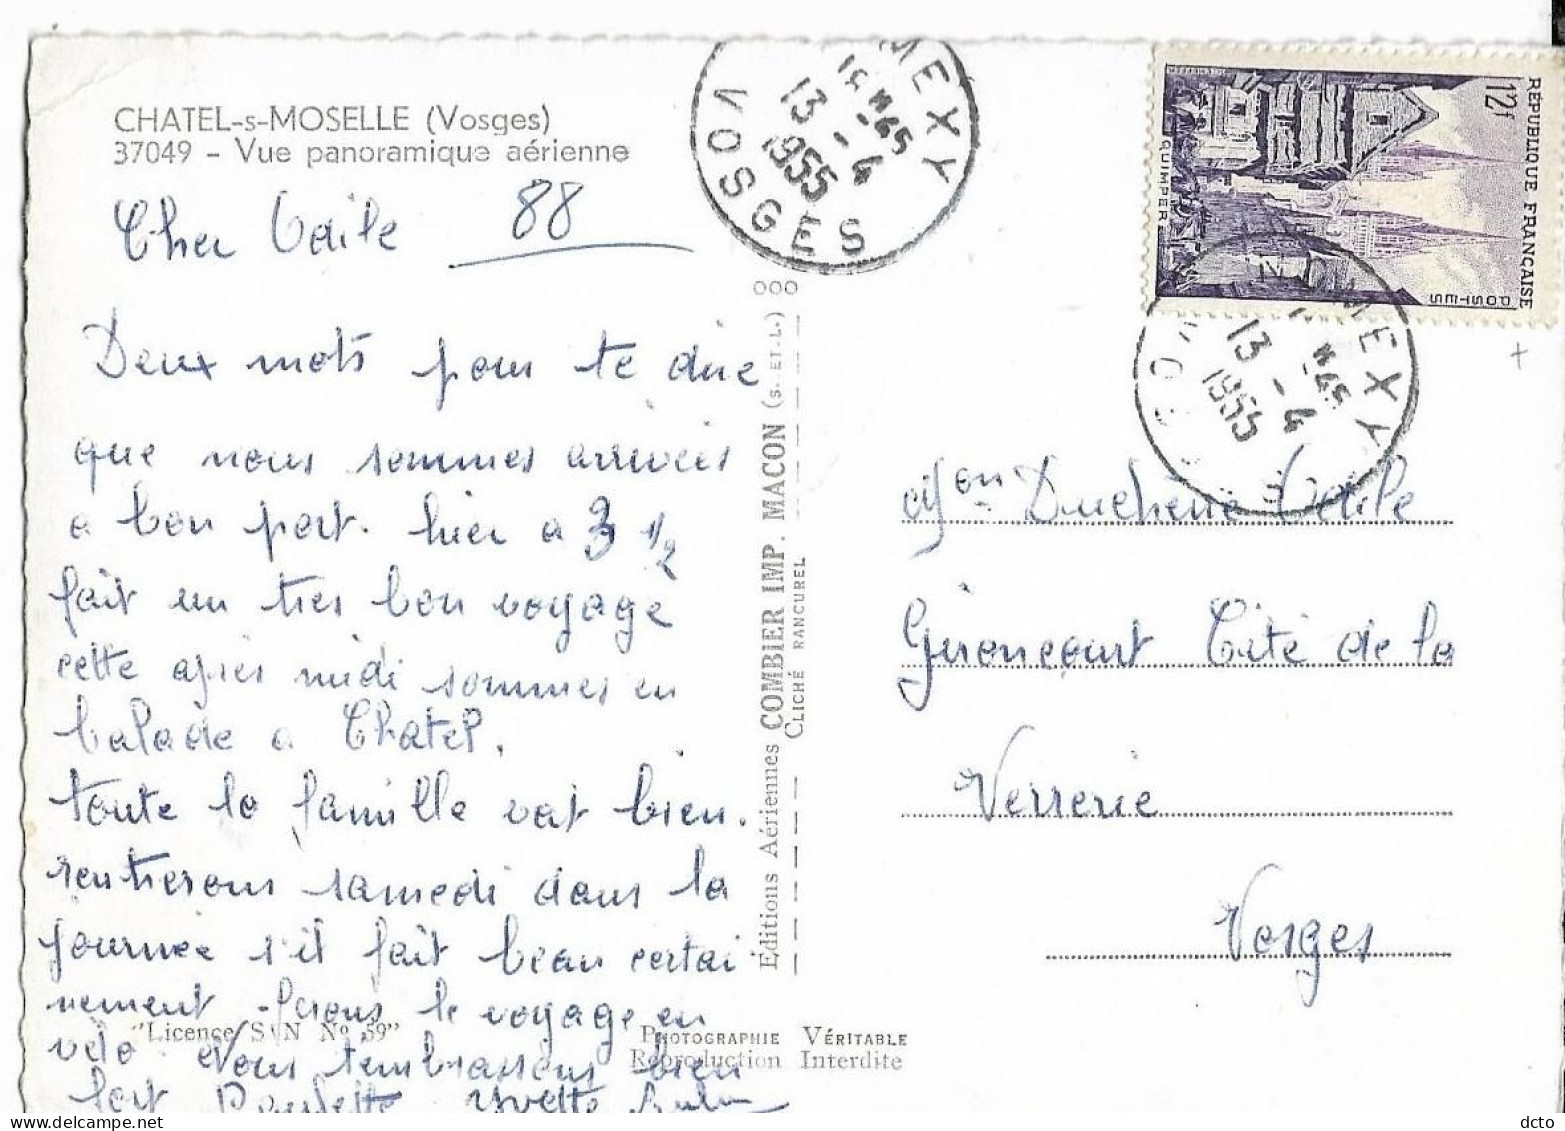 CHATEL-s-MOSELLE (Vosges)
37049 - Vue panoramique aérienne
Cher
88
Deux mots pour te dire
que nous sommes arrivées
a bon port. hier a 3 1/2
fait un tres bon voyage
cette après midi sommes en
balade a Chatel.
toute la famille vat bien.
rentrerons samedi dans la
journée s'il fait beau certai
nement ferons le voyage en
vélo. Nous tembrassons bien
fort Paulette Yvette
"Licence S N No 59"
PHOTOGRAPHIE VÉRITABLE
Reproduction Interdite
Éditions Aériennes COMBIER IMP. MACON (S. ET L.)
CLICHÉ RANCUREL
MEXY
13 - 4
1955
VOSGES
RÉPUBLIQUE FRANÇAISE
12f
POSTES
QUIMPER
NOMEXY
13 - 4
1955
VOS
Duchêne
Gironcourt Cité de la
Verrerie
Vosges
dcto